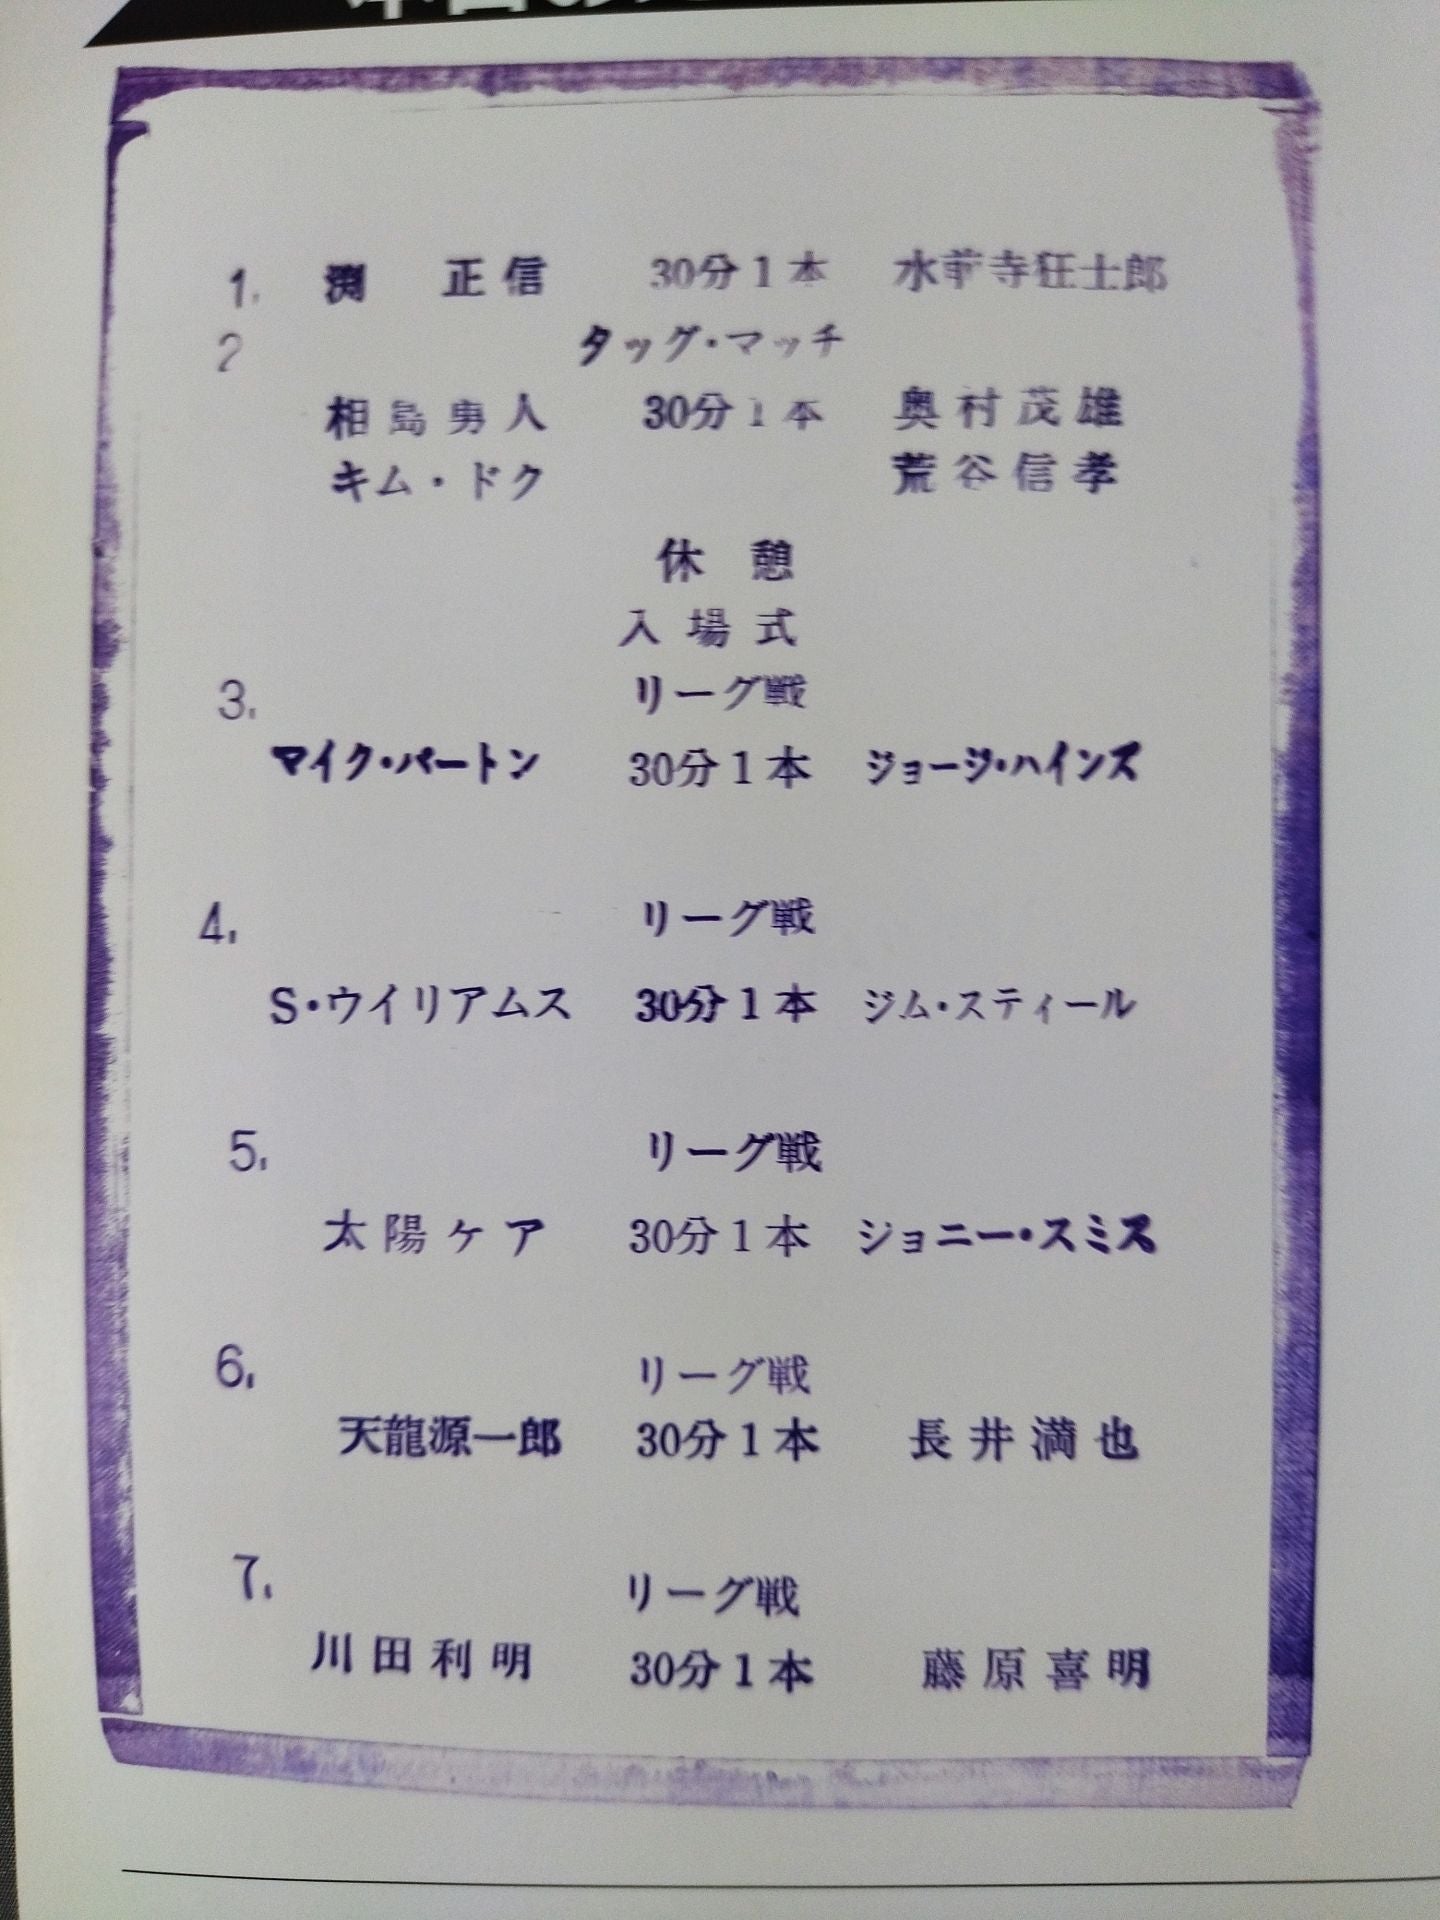 1. 渕 正信 30分1本 水前寺狂士郎
2 タッグ・マッチ
相島勇人 30分1本 奥村茂雄
キム・ドク 荒谷信孝
休憩
入場式
3. リーグ戦
マイク・バートン 30分1本 ジョージ・ハインズ
4. リーグ戦
S・ウイリアムス 30分1本 ジム・スティール
5. リーグ戦
太陽ケア 30分1本 ジョニー・スミス
6. リーグ戦
天龍源一郎 30分1本 長井満也
7. リーグ戦
川田利明 30分1本 藤原喜明